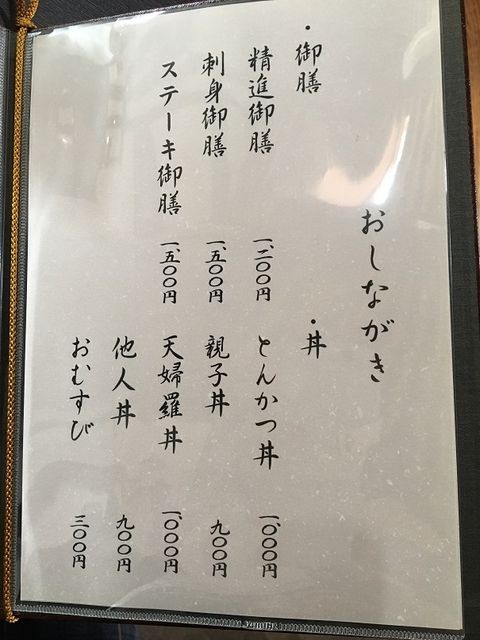 おしながき
・御膳
精進御膳 一、二〇〇円
刺身御膳 一、五〇〇円
ステーキ御膳 一、五〇〇円
・丼
とんかつ丼 一、〇〇〇円
親子丼 九〇〇円
天婦羅丼 一、〇〇〇円
他人丼 九〇〇円
おむすび 三〇〇円